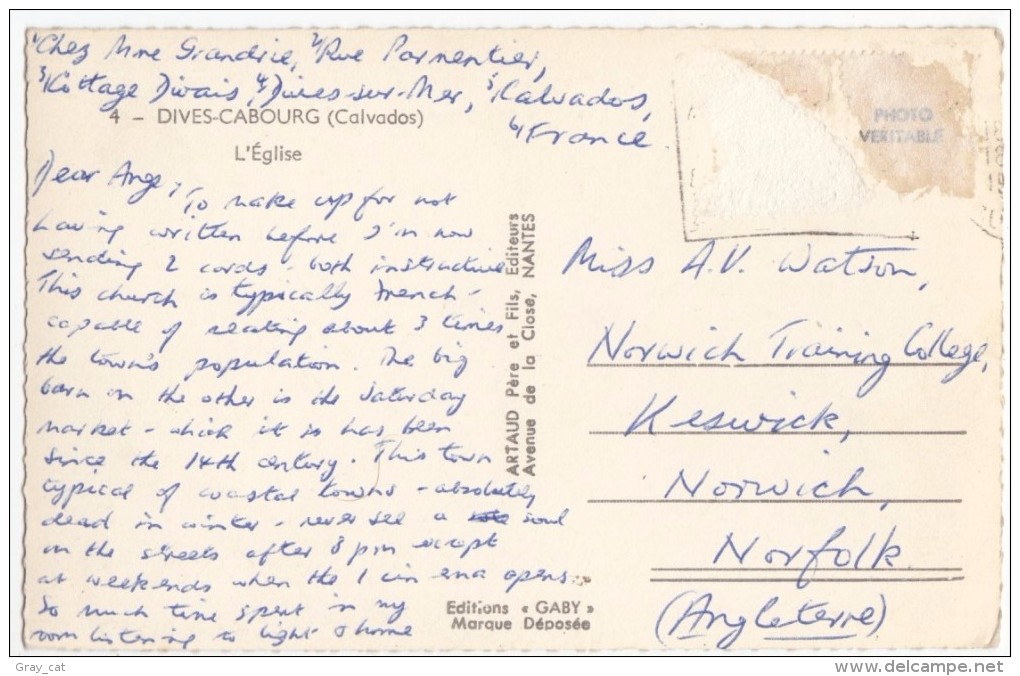 1/Chez Mme Grandrie, 2/Rue Parmentier,
3/Kottage Divais, 4/Dives-sur-Mer, 5/Calvados,
6/France.
4 – DIVES-CABOURG (Calvados)
L'Église
Dear Ange,
To make up for not
having written before I'm now
sending 2 cards – both instructive
This church is typically French –
capable of seating about 3 times
the town's population. The big
barn on the other is the Saturday
market – which it is has been
since the 14th century. This town
typical of coastal towns – absolutely
dead in winter – never see a soul
on the streets after 8 pm except
at weekends when the 1 cinema opens.
So much time spent in my
room listening to Light & Home
ARTAUD Père et Fils, Editeurs
Avenue de la Close, NANTES
Editions « GABY »
Marque Déposée
PHOTO
VERITABLE
Miss A.V. Watson,
Norwich Training College,
Keswick,
Norwich,
Norfolk.
(Angleterre)
Gray_cat
www.delcampe.net